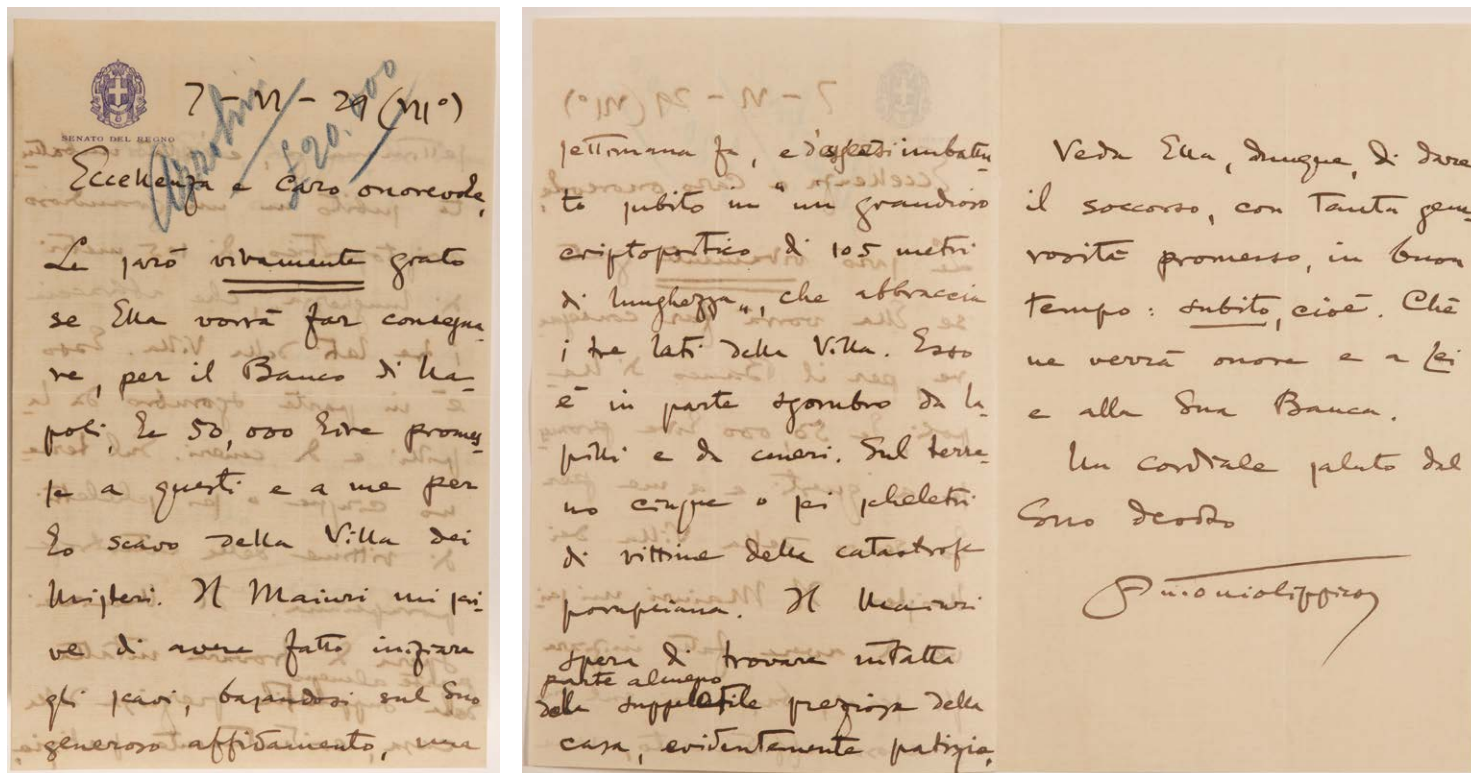 SENATO DEL REGNO
7-VI-29 (VII°)
£20.000
Eccellenza e caro onorevole,
Le sarò vivamente grato
se Ella vorrà far consegna
re, per il Banco di Na_
poli, le 50,000 lire promes_
se a questi e a me per
lo scavo della Villa dei
Misteri. Il Maiuri mi scri_
ve di avere fatto iniziare
gli scavi, basandosi sul Suo
generoso affidamento, una
settimana fa, e d'essersi imbattu
to subito in "un grandioso
criptoportico di 105 metri
di lunghezza", che abbraccia
i tre lati della Villa. Esso
è in parte sgombro da la_
pilli e da ceneri. Sul terre_
no cinque o sei scheletri
di vittime della catastrofe
pompeiana. Il Maiuri
spera di trovare intatta
parte almeno
della suppellettile preziosa della
casa, evidentemente patrizia.
Veda Ella, dunque, di dare
il soccorso, con tanta gene_
rosità promesso, in buon
tempo: subito, cioè. Chè
ne verrà onore e a Lei
e alla Sua Banca.
Un cordiale saluto dal
Suo devoto